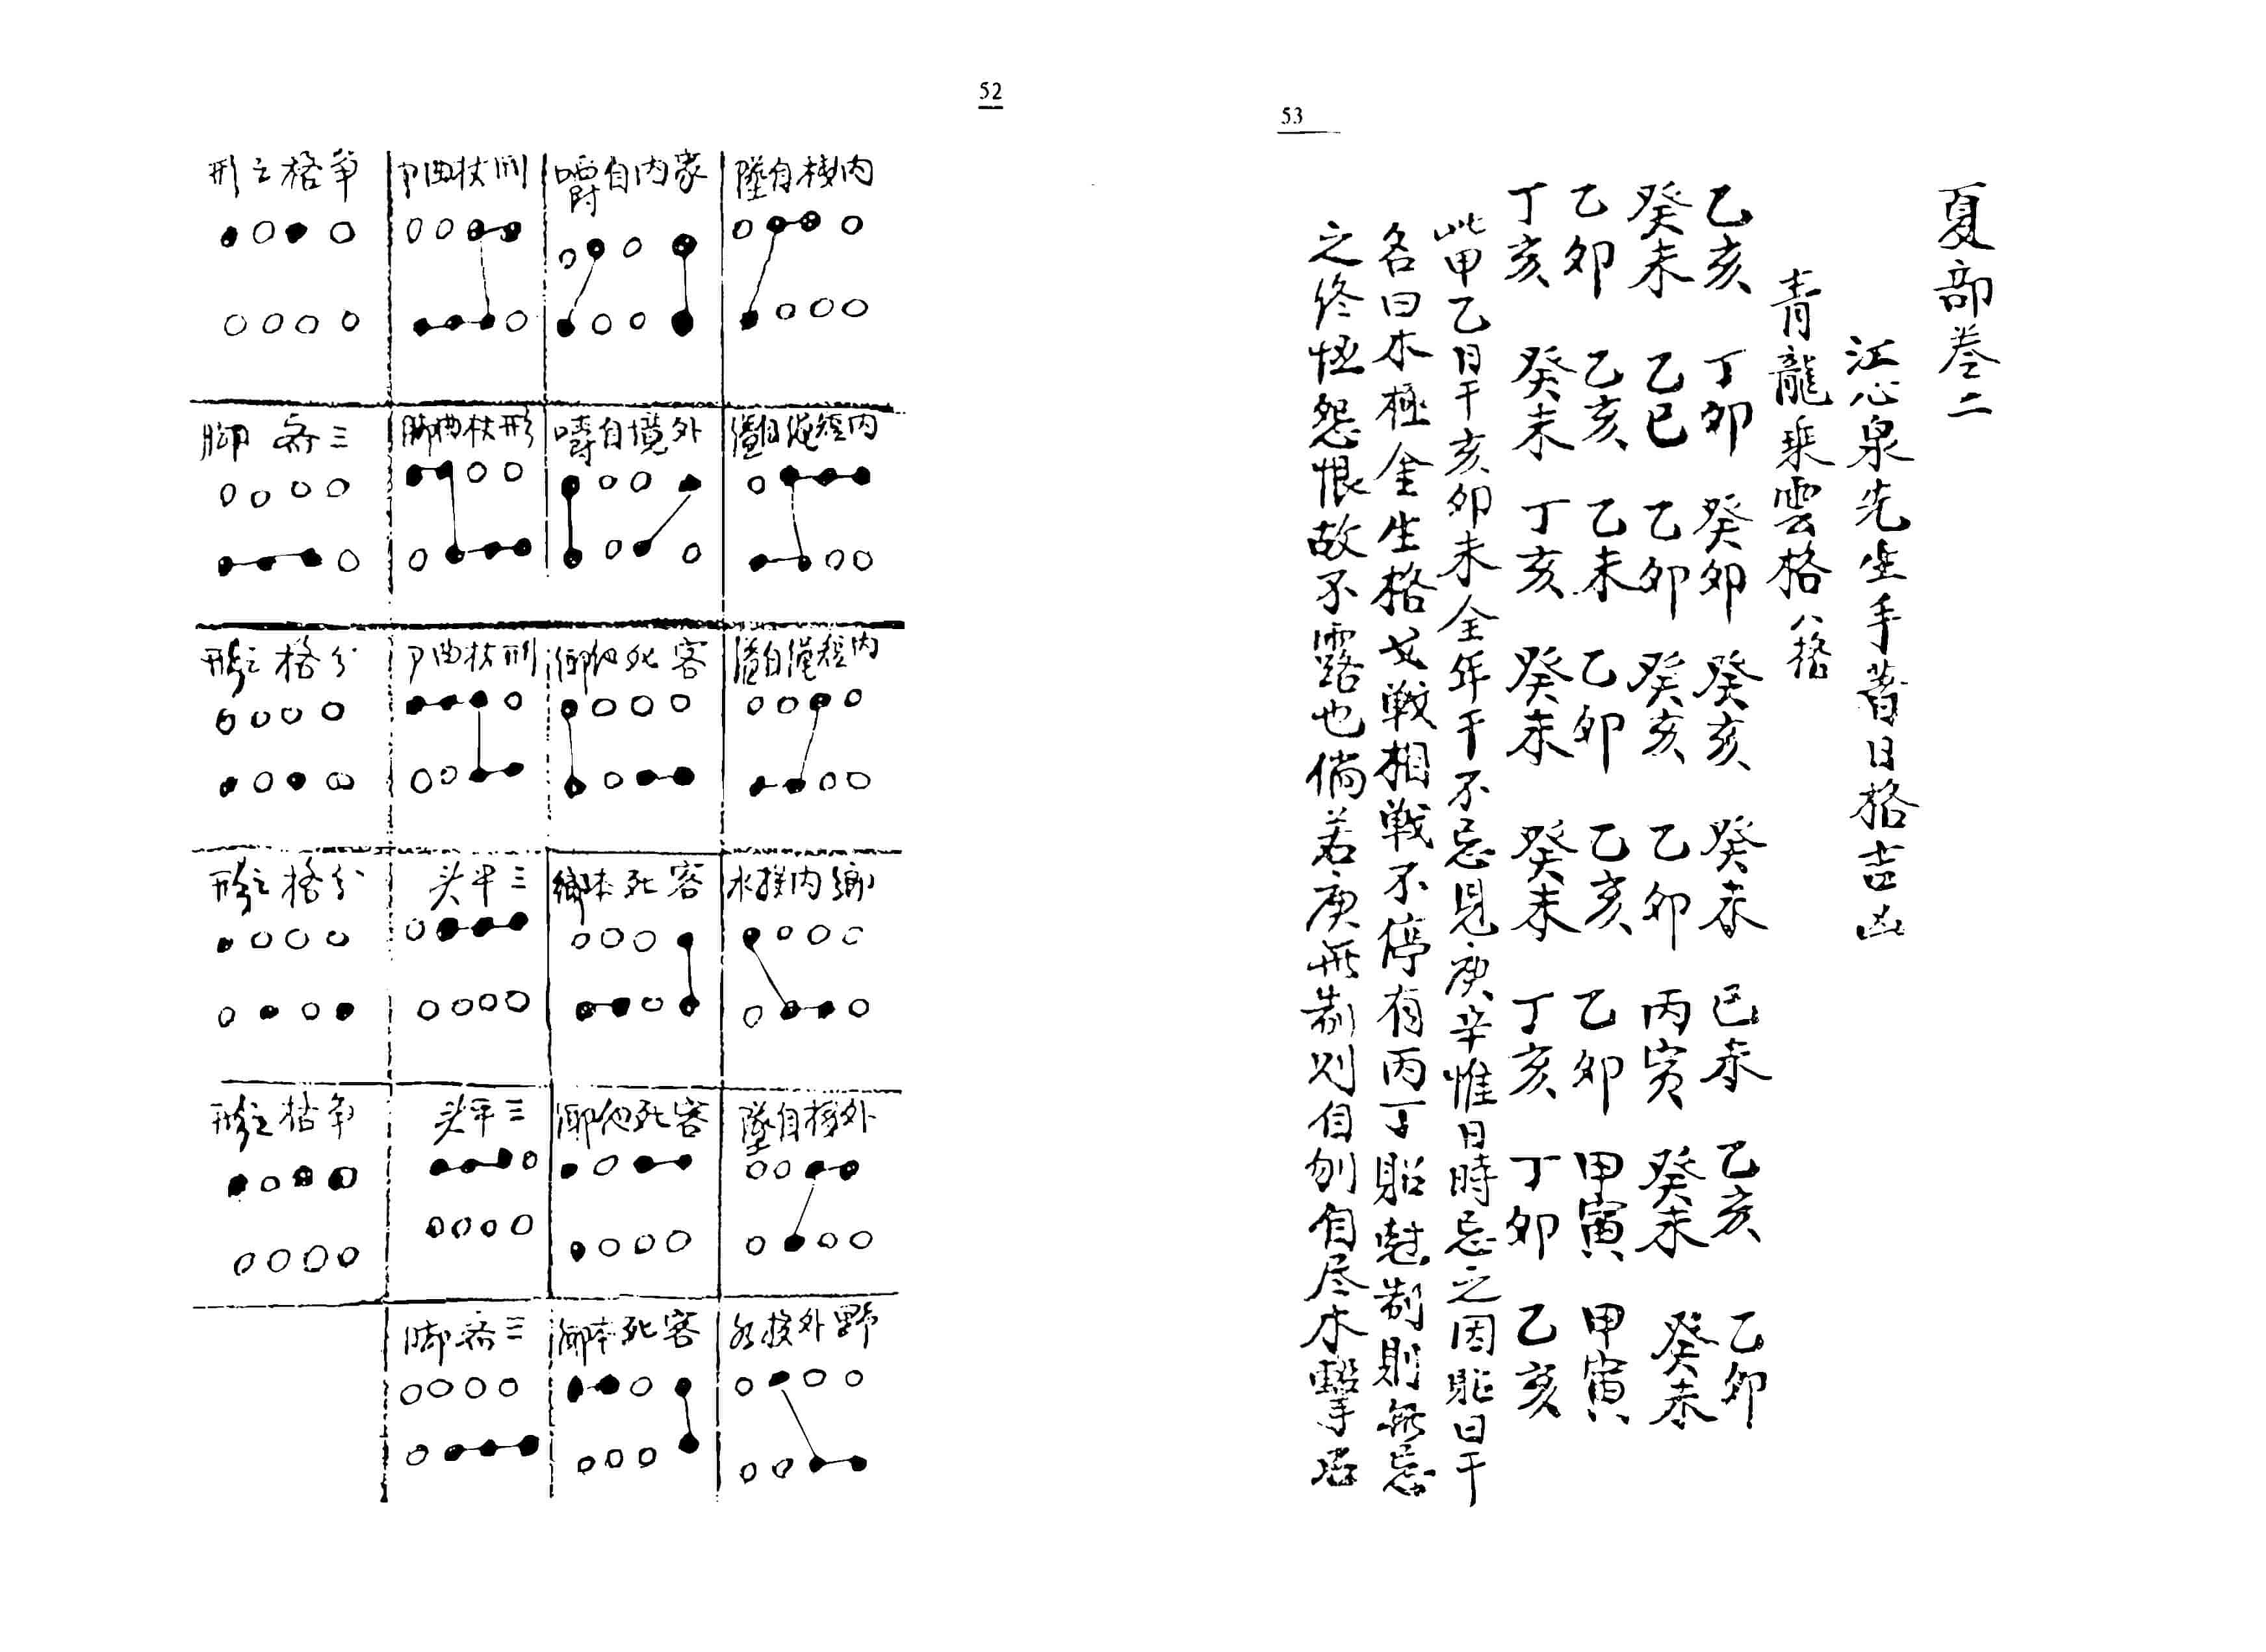 52
内楼自墜
家内自嚼
刑杖曲
争格之形
内
外境自嚼
形杖曲脚
三齐脚
内
客死他鄉
刑杖曲
分格之形
鄉内投水
客死本鄉
三平头
分格之形
外楼自墜
客死他鄉
三平头
争格之形
野外投水
客死本鄉
三齐脚
53
夏部卷二
江心泉先生手著日格吉凶
青龍乘雲格
乙亥 丁卯 癸卯 癸亥 癸未 己未 乙亥 乙卯
癸未 乙巳 乙卯 癸亥 乙卯 丙寅 癸未 癸未
乙卯 乙亥 乙未 乙卯 乙亥 乙卯 甲寅 甲寅
丁亥 癸未 丁亥 癸未 癸未 丁亥 丁卯 乙亥
此甲乙日干亥卯未全年干不忌見庚辛惟日時忌之因貼日干
名曰木極金生格戈戰相戰不停有丙丁貼尅制則無忌
之終怪怨恨故不露也倘若庚無制则自刎自尽木擊